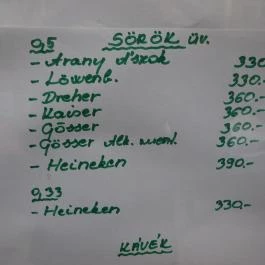 0,5 SÖRÖK üv.
- Arany Ászok 330
- Löwenb. 330.-
- Dreher 360.-
- Kaiser 360.-
- Gösser 360.-
- Gösser Alk. ment. 360.-
- Heineken 390.-
0,33
- Heineken 330.-
KÁVÉK